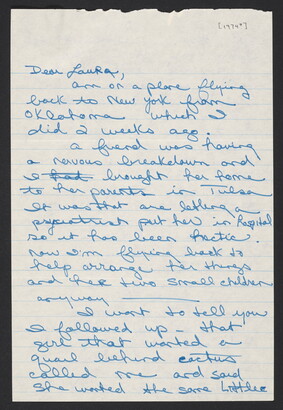 [1974?]
Dear Laura,
am on a plane flying
back to New York from
Oklahoma which I
did 2 weeks ago.
a friend was having
a nervous breakdown and
I had brought her home
to her parents in Tulsa
It was that are letting a
psychiatrist put her in Hospital
so it has been hectic.
now I'm flying back to
help arrange her things
and her two small children
anyway
I want to tell you
I followed up - that
girl that wanted a
quail behind cactus
called me and said
she wanted the same little